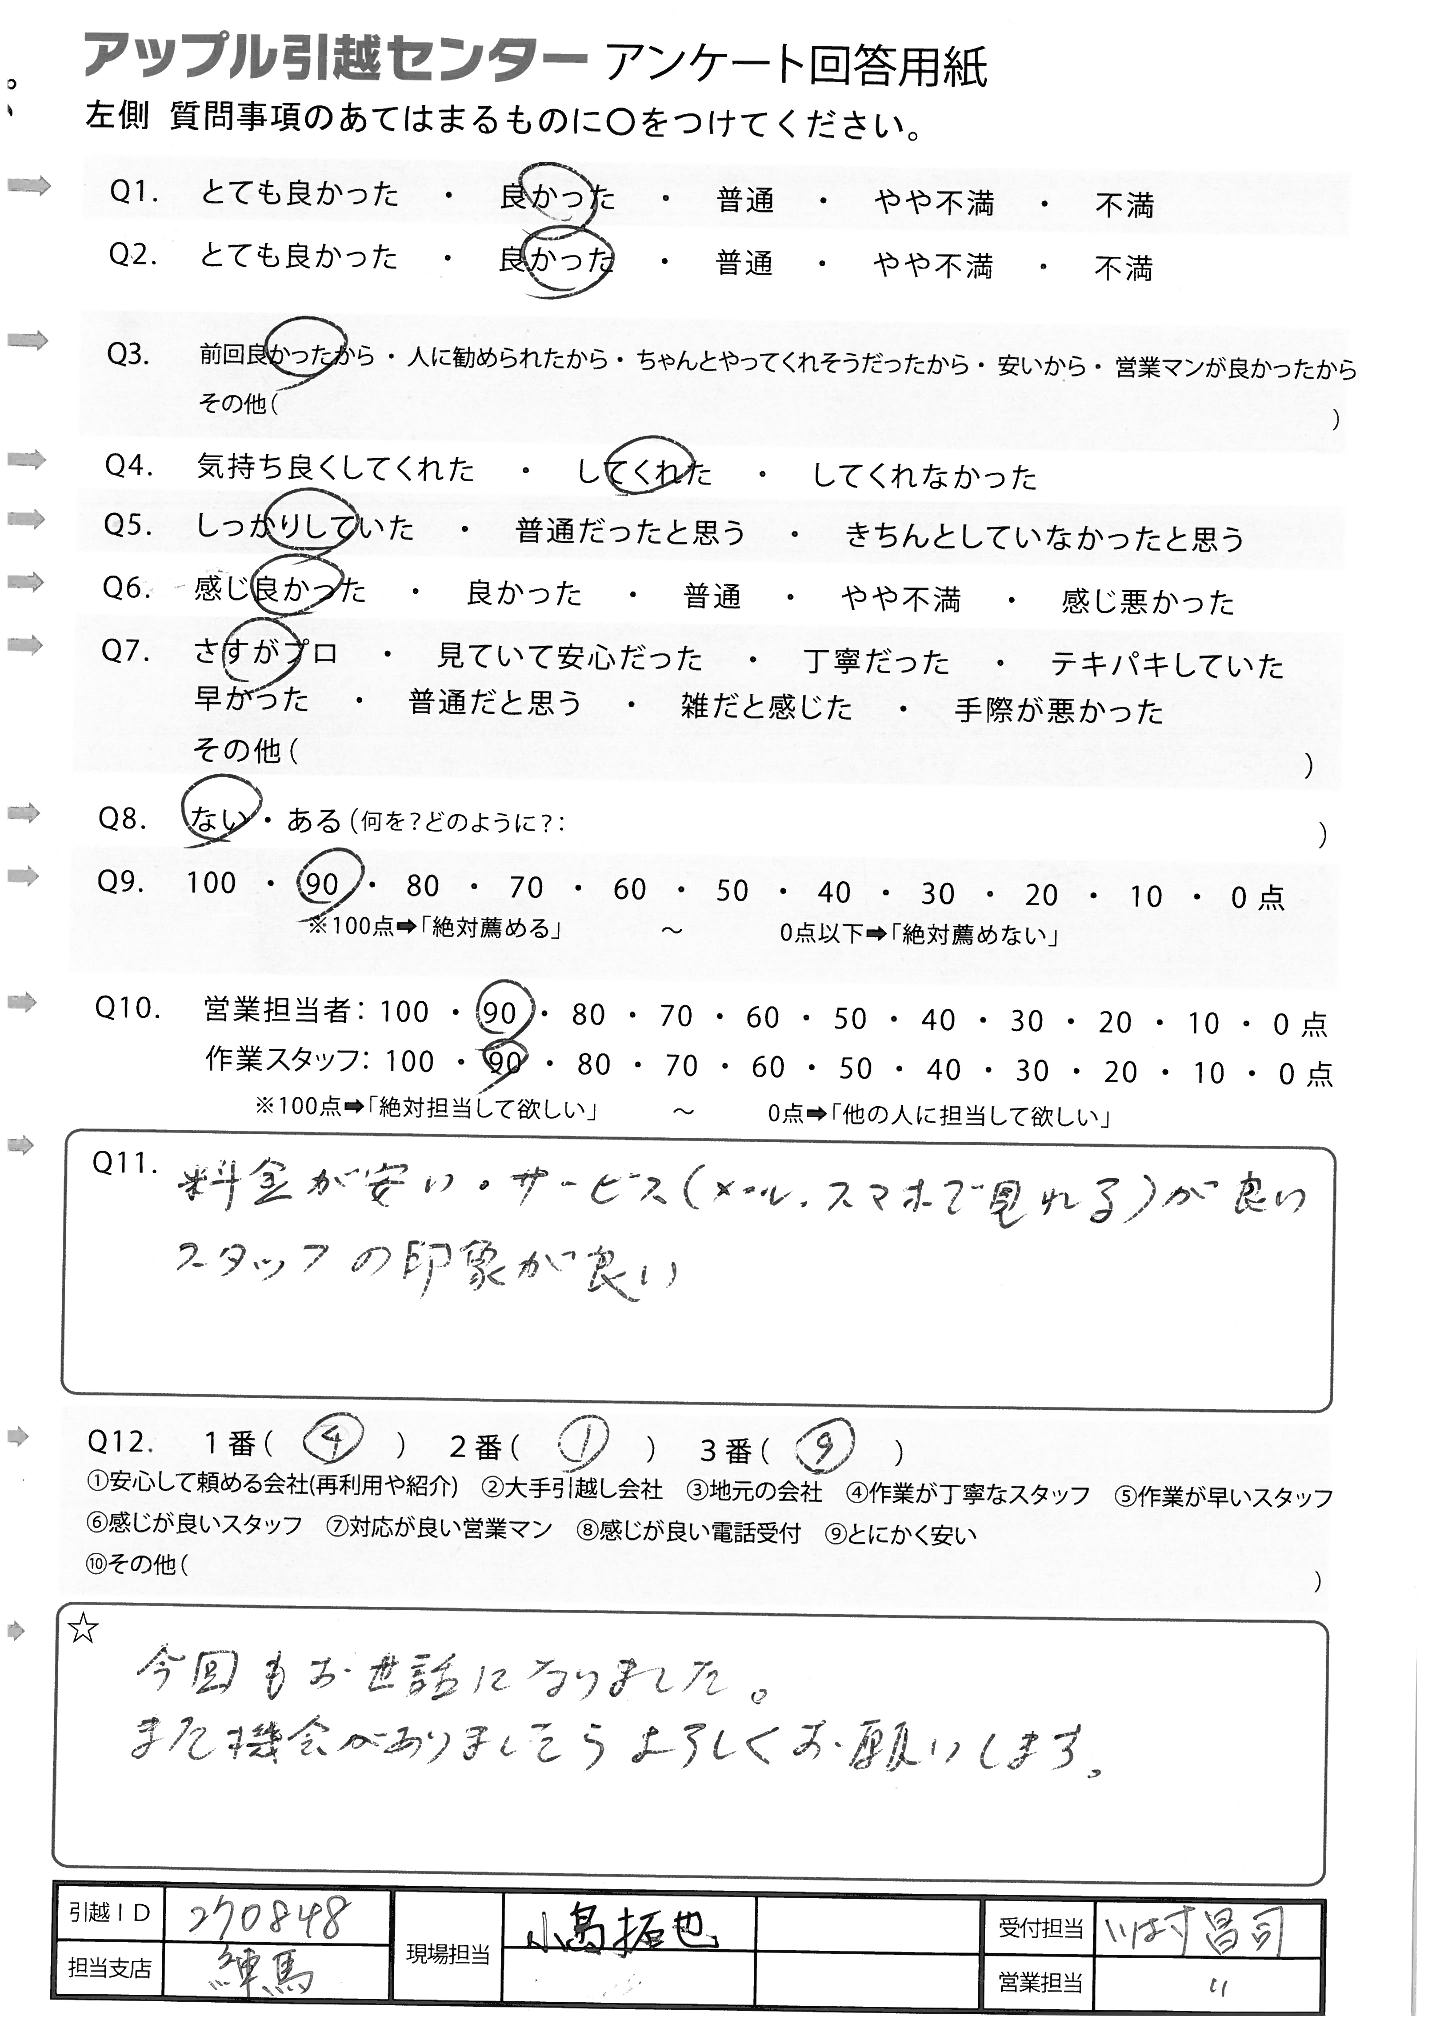 アップル引越センター アンケート回答用紙
左側 質問事項のあてはまるものに〇をつけてください。
Q1. とても良かった ・ 良かった ・ 普通 ・ やや不満 ・ 不満
Q2. とても良かった ・ 良かった ・ 普通 ・ やや不満 ・ 不満
Q3. 前回良かったから・ 人に勧められたから・ ちゃんとやってくれそうだったから・ 安いから・ 営業マンが良かったから
その他( )
Q4. 気持ち良くしてくれた ・ してくれた ・ してくれなかった
Q5. しっかりしていた ・ 普通だったと思う ・ きちんとしていなかったと思う
Q6. 感じ良かった ・ 良かった ・ 普通 ・ やや不満 ・ 感じ悪かった
Q7. さすがプロ ・ 見ていて安心だった ・ 丁寧だった ・ テキパキしていた
早かった ・ 普通だと思う ・ 雑だと感じた ・ 手際が悪かった
その他( )
Q8. ない ・ ある (何を?どのように?: )
Q9. 100 ・ 90 ・ 80 ・ 70 ・ 60 ・ 50 ・ 40 ・ 30 ・ 20 ・ 10 ・ 0 点
※100点➡「絶対薦める」 ～ 0点以下➡「絶対薦めない」
Q10. 営業担当者: 100 ・ 90 ・ 80 ・ 70 ・ 60 ・ 50 ・ 40 ・ 30 ・ 20 ・ 10 ・ 0 点
作業スタッフ: 100 ・ 90 ・ 80 ・ 70 ・ 60 ・ 50 ・ 40 ・ 30 ・ 20 ・ 10 ・ 0 点
※100点➡「絶対担当して欲しい」 ～ 0点➡「他の人に担当して欲しい」
Q11. 料金が安い。サービス(メール、スマホで見れる)が良い
スタッフの印象が良い
Q12. 1番( ④ ) 2番( ① ) 3番( ⑨ )
①安心して頼める会社(再利用や紹介) ②大手引越し会社 ③地元の会社 ④作業が丁寧なスタッフ ⑤作業が早いスタッフ
⑥感じが良いスタッフ ⑦対応が良い営業マン ⑧感じが良い電話受付 ⑨とにかく安い
⑩その他( )
☆
今回もお世話になりました。
また機会がありましたらよろしくお願いします。
引越ID 270848 現場担当 小島拓也 受付担当 昌司
担当支店 練馬 営業担当 〃